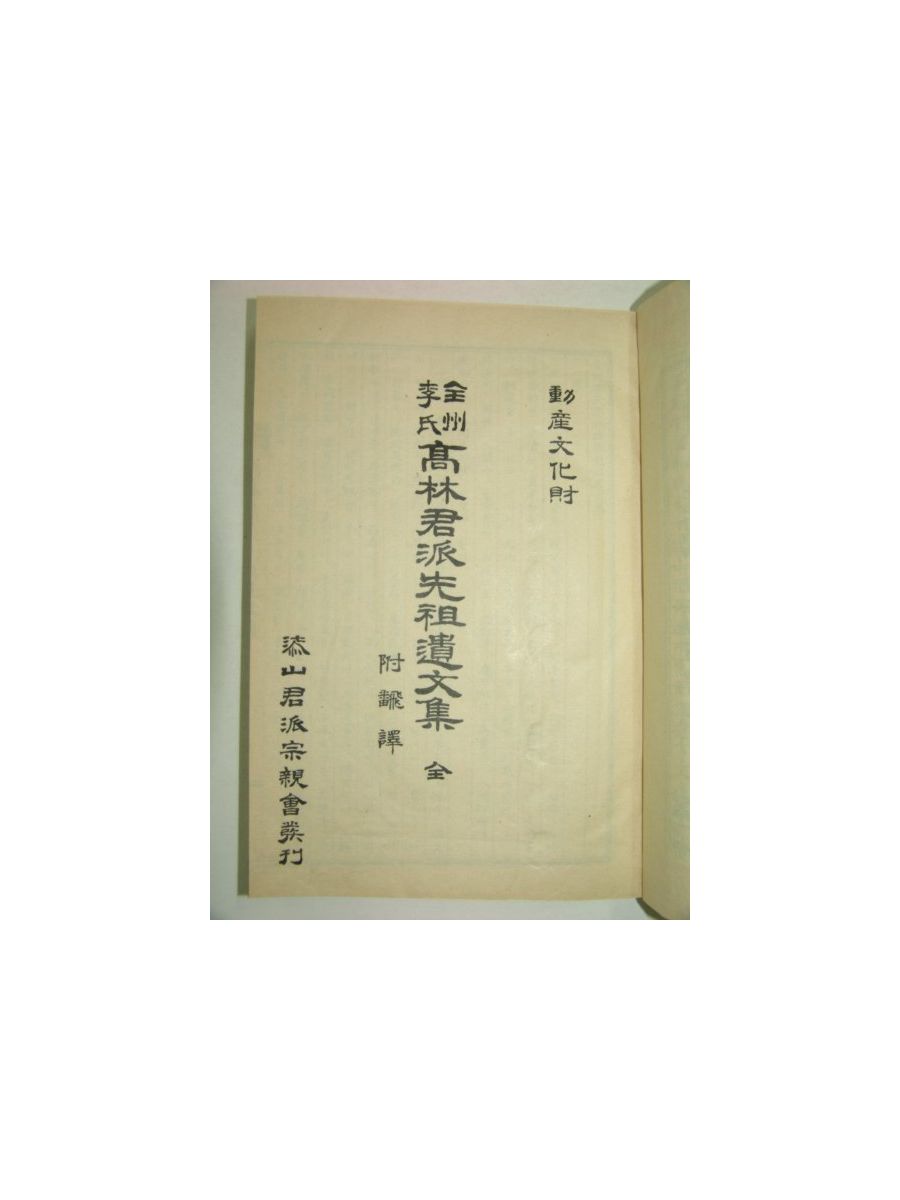 動産文化財
全州
李氏
高林君派先祖遺文集 全
附飜譯
漆山君派宗親會發刊